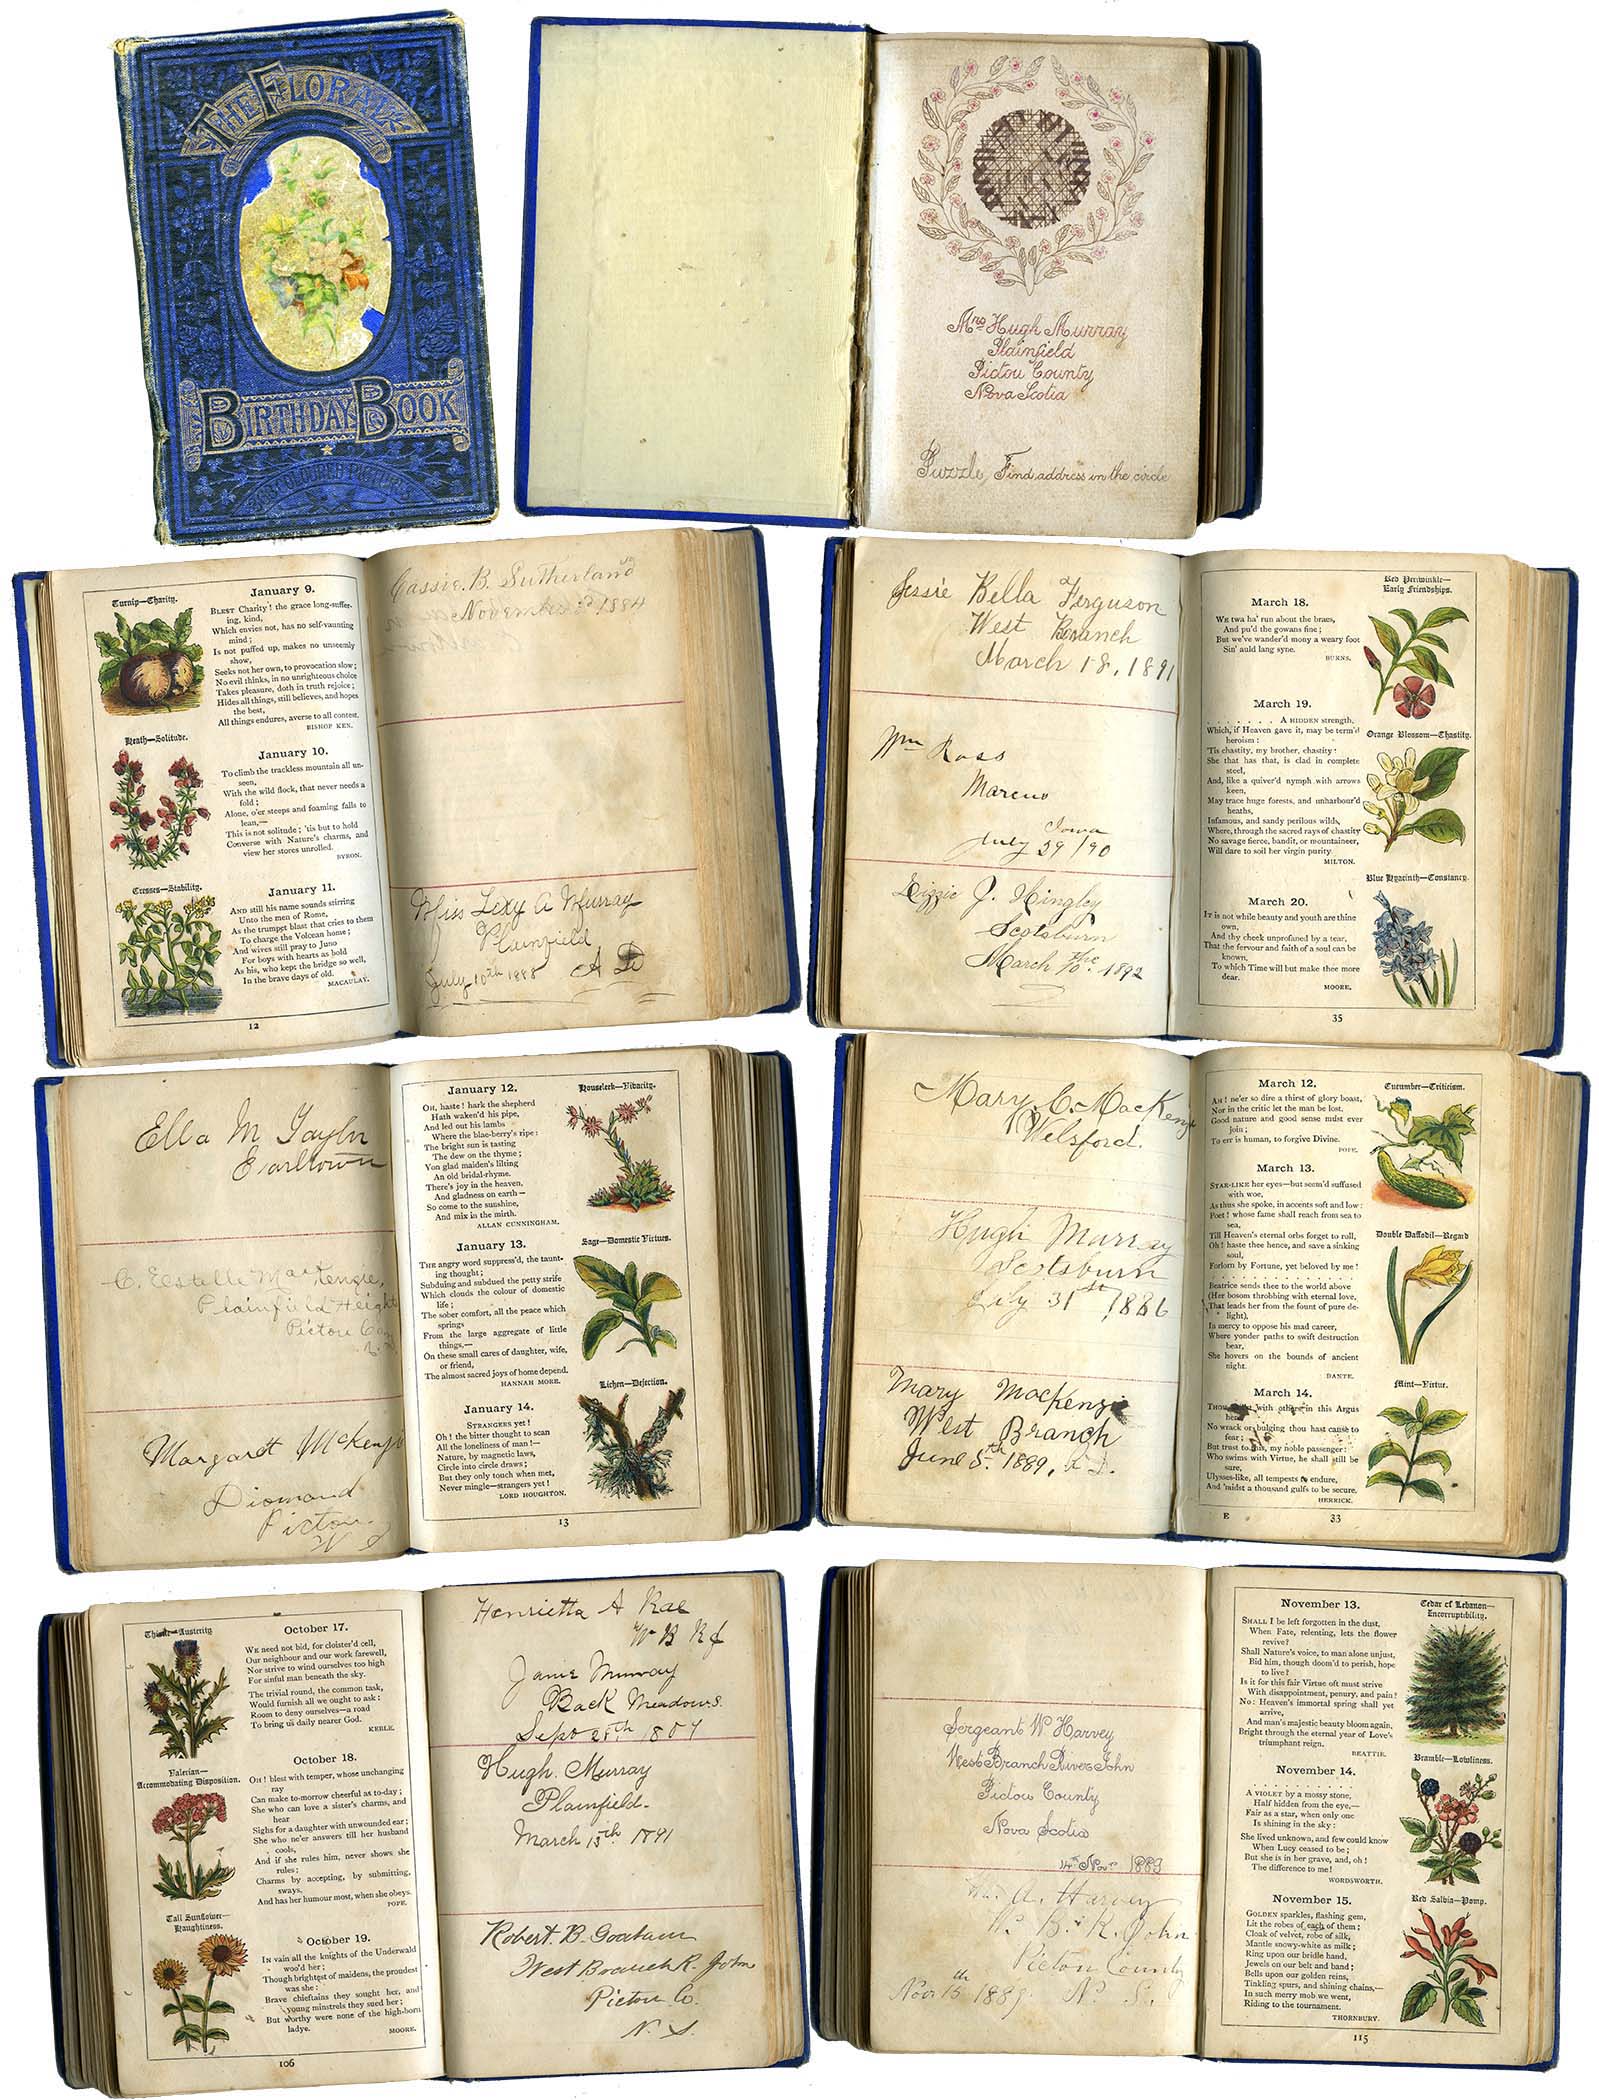 THE FLORAL
BIRTHDAY BOOK
COLOURED PICTURES
Mrs Hugh Murray
Plainfield
Pictou County
Nova Scotia
Puzzle, Find address in the circle
Turnip—Charity.
January 9.
BLEST Charity! the grace long-suffer-
ing, kind,
Which envies not, has no self-vaunting
mind;
Is not puffed up, makes no unseemly
show,
Seeks not her own, to provocation slow;
No evil thinks, in no unrighteous choice
Takes pleasure, doth in truth rejoice;
Hides all things, still believes, and hopes
the best,
All things endures, averse to all contest.
BISHOP KEN.
Heath—Solitude.
January 10.
To climb the trackless mountain all un-
seen,
With the wild flock, that never needs a
fold;
Alone, o'er steeps and foaming falls to
lean,—
This is not solitude; 'tis but to hold
Converse with Nature's charms, and
view her stores unrolled.
BYRON.
Cresses—Stability.
January 11.
AND still his name sounds stirring
Unto the men of Rome,
As the trumpet blast that cries to them
To charge the Volcean home;
And wives still pray to Juno
For boys with hearts as bold
As his, who kept the bridge so well,
In the brave days of old.
MACAULAY.
12
Cassie. B. Sutherland
November 1884
Miss Lexy A Murray
Plainfield
July 10th 1888 A D
Jessie Bella Ferguson
West Branch
March 18, 1891
Wm Ross
Marcus
Iowa
July 29/90
Lizzie J. Hingley
Scotsburn
March 10th 1892
Red Periwinkle—
Early Friendships.
March 18.
WE twa ha' run about the braes,
And pu'd the gowans fine;
But we've wander'd mony a weary foot
Sin' auld lang syne.
BURNS.
March 19.
. . . . . . . A HIDDEN strength,
Which, if Heaven gave it, may be term'd
heroism:
'Tis chastity, my brother, chastity:
She that has that, is clad in complete
steel,
And, like a quiver'd nymph with arrows
keen,
May trace huge forests, and unharbour'd
heaths,
Infamous, and sandy perilous wilds,
Where, through the sacred rays of chastity
No savage fierce, bandit, or mountaineer,
Will dare to soil her virgin purity.
MILTON.
Orange Blossom—Chastity.
March 20.
IT is not while beauty and youth are thine
own,
And thy cheek unprofaned by a tear,
That the fervour and faith of a soul can be
known,
To which Time will but make thee more
dear.
MOORE.
Blue Hyacinth—Constancy.
35
Ella M Taylor
Earltown
C. Estelle MacKenzie,
Plainfield Heights
Pictou Co
Margaret McKenzie
Diamond
Pictou
N S
January 12.
OH, haste! hark the shepherd
Hath waken'd his pipe,
And led out his lambs
Where the blae-berry's ripe:
The bright sun is tasting
The dew on the thyme;
Yon glad maiden's lilting
An old bridal-rhyme.
There's joy in the heaven,
And gladness on earth—
So come to the sunshine,
And mix in the mirth.
ALLAN CUNNINGHAM.
Houseleek—Vivacity.
January 13.
THE angry word suppress'd, the taunt-
ing thought;
Subduing and subdued the petty strife
Which clouds the colour of domestic
life;
The sober comfort, all the peace which
springs
From the large aggregate of little
things,—
On these small cares of daughter, wife,
or friend,
The almost sacred joys of home depend.
HANNAH MORE.
Sage—Domestic Virtues.
January 14.
STRANGERS yet!
Oh! the bitter thought to scan
All the loneliness of man!—
Nature, by magnetic laws,
Circle into circle draws;
But they only touch when met,
Never mingle—strangers yet!
LORD HOUGHTON.
Lichen—Dejection.
13
Mary C. MacKenzie
Welsford.
Hugh Murray
Scotsburn
July 31st, 1886
Mary MacKenzie
West Branch
June 5th 1889, A D.
March 12.
AH! ne'er so dire a thirst of glory boast,
Nor in the critic let the man be lost.
Good nature and good sense must ever
join;
To err is human, to forgive Divine.
POPE.
Cucumber—Criticism.
March 13.
STAR-LIKE her eyes—but seem'd suffused
with woe,
As thus she spoke, in accents soft and low:
Poet! whose fame shall reach from sea to
sea,
Till Heaven's eternal orbs forget to roll,
Oh! haste thee hence, and save a sinking
soul,
Forlorn by Fortune, yet beloved by me!
. . . . . . . . . . . . . . .
Beatrice sends thee to the world above
(Her bosom throbbing with eternal love,
That leads her from the fount of pure de-
light),
In mercy to oppose his mad career,
Where yonder paths to swift destruction
bear,
She hovers on the bounds of ancient
night.
DANTE.
Double Daffodil—Regard
March 14.
Thou with others in this Argus
No wrack or bulging thou hast cause to
fear;
But trust to this, my noble passenger:
Who swims with Virtue, he shall still be
sure,
Ulysses-like, all tempests to endure,
And 'midst a thousand gulfs to be secure.
HERRICK.
Mint—Virtue.
E
33
Thistle—Austerity
October 17.
WE need not bid, for cloister'd cell,
Our neighbour and our work farewell,
Nor strive to wind ourselves too high
For sinful man beneath the sky.
The trivial round, the common task,
Would furnish all we ought to ask;
Room to deny ourselves—a road
To bring us daily nearer God.
KEBLE.
Valerian—
Accommodating Disposition.
October 18.
OH! blest with temper, whose unchanging
ray
Can make to-morrow cheerful as to-day;
She who can love a sister's charms, and
hear
Sighs for a daughter with unwounded ear;
She who ne'er answers till her husband
cools,
And if she rules him, never shows she
rules;
Charms by accepting, by submitting,
sways,
And has her humour most, when she obeys.
POPE.
Tall Sunflower—
Haughtiness.
October 19.
IN vain all the knights of the Underwald
woo'd her;
Though brightest of maidens, the proudest
was she:
Brave chieftains they sought her, and
young minstrels they sued her;
But worthy were none of the high-born
ladye.
MOORE.
106
Henrietta A Rae
W B R J
Janie Murray
Back Meadows.
Sept 25th
Hugh. Murray
Plainfield.
March 13th 1891
Robert. B. Graham
West Branch R. John
Pictou Co.
N. S.
Sergeant W Harvey
West Branch River John
Pictou County
Nova Scotia
14th Novr 1883
A. Harvey
W. B. R. John
Pictou County
Novr 15th 1889. N. S.
November 13.
SHALL I be left forgotten in the dust,
When Fate, relenting, lets the flower
revive?
Shall Nature's voice, to man alone unjust,
Bid him, though doom'd to perish, hope
to live?
Is it for this fair Virtue oft must strive
With disappointment, penury, and pain?
No: Heaven's immortal spring shall yet
arrive,
And man's majestic beauty bloom again,
Bright through the eternal year of Love's
triumphant reign.
BEATTIE.
Cedar of Lebanon—
Incorruptibility.
November 14.
. . . . . . . . . . . .
A VIOLET by a mossy stone,
Half hidden from the eye,—
Fair as a star, when only one
Is shining in the sky:
She lived unknown, and few could know
When Lucy ceased to be;
But she is in her grave, and, oh!
The difference to me!
WORDSWORTH.
Bramble—Lowliness.
November 15.
GOLDEN sparkles, flashing gem,
Lit the robes of each of them;
Cloak of velvet, robe of silk,
Mantle snowy-white as milk;
Ring upon our bridle hand,
Jewels on our belt and band;
Bells upon our golden reins,
Tinkling spurs, and shining chains,—
In such merry mob we went,
Riding to the tournament.
THORNBURY.
Red Salvia—Pomp.
115